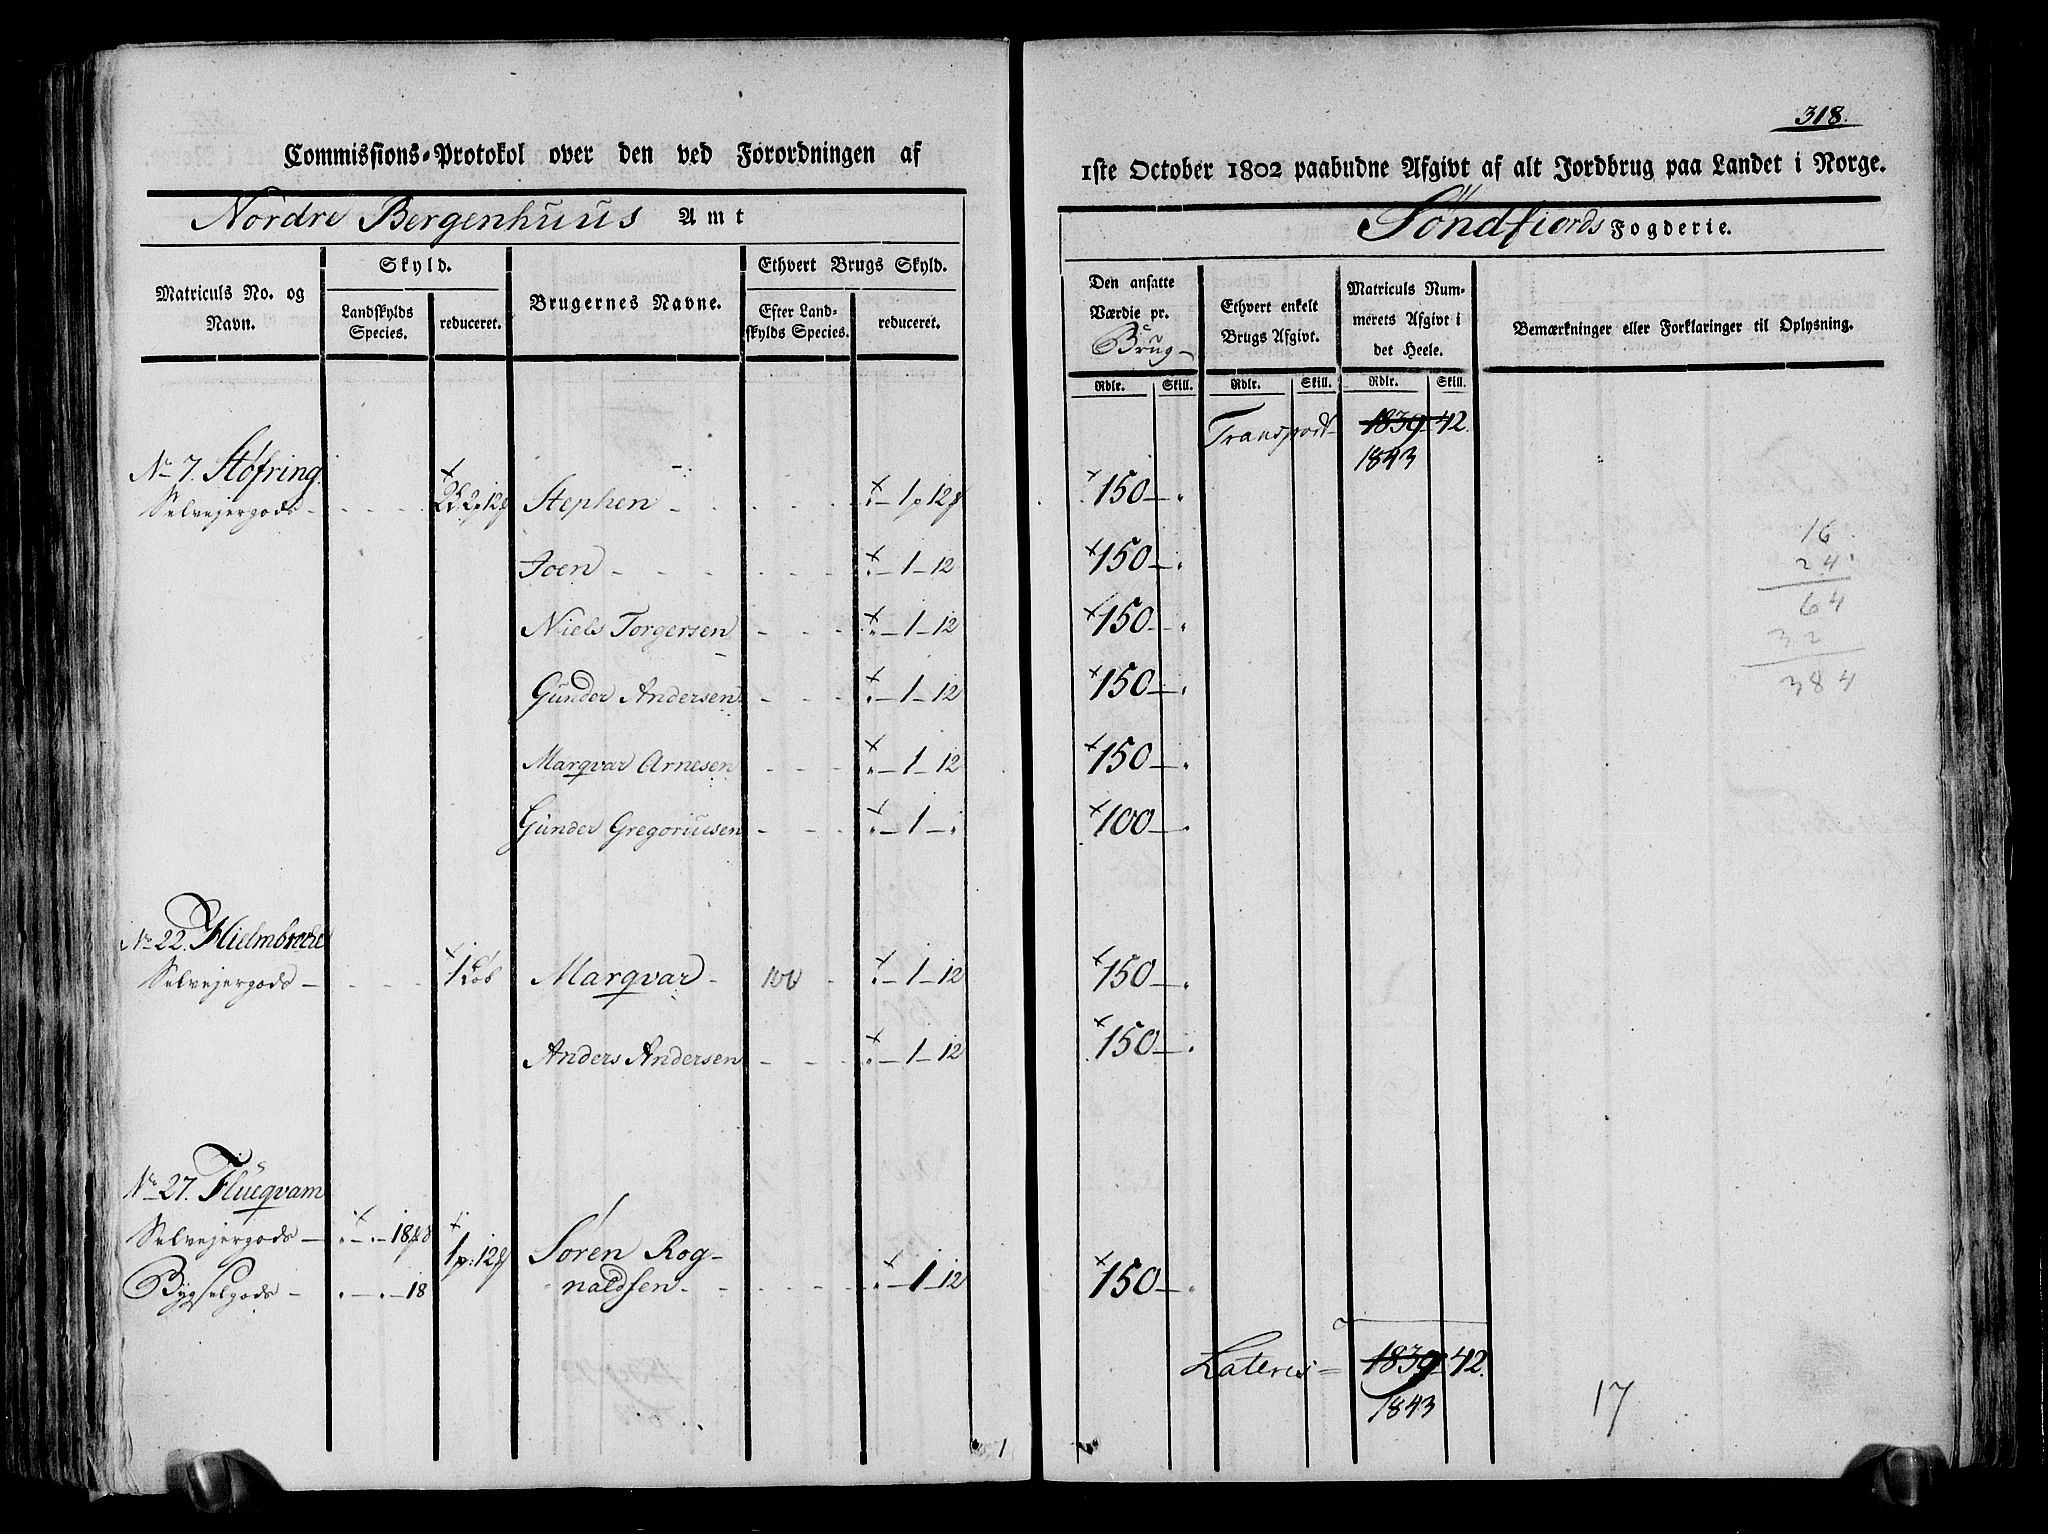 318.
Commissions-Protokol over den ved Forordningen af
1ste October 1802 paabudne Afgivt af alt Jordbrug paa Landet i Norge.
Nordre Bergenhuus Amt
Søndfjords Fogderie.
Matriculs No. og Navn.
Skyld.
Landskylds Species.
reduceret.
Brugernes Navne.
Ethvert Brugs Skyld.
Efter Landskylds Species.
reduceret.
Den ansatte Værdie pr. Brug
Ethvert enkelt Brugs Afgivt.
Matriculs Nummerets Afgivt i det Heele.
Bemærkninger eller Forklaringer til Oplysning.
Rdlr. Skill. Rdlr. Skill. Rdlr. Skill.
Transport 1839 42.
1843
No 7. Støfring
Selvejergods Stephen 1 p 12 150
Joen 1 12 150
Niels Torgersen 1 12 150
Gunder Andersen 1 12 150
Marqvar Arnesen 1 12 150
Gunder Gregoriusen 1 100
16
24
64
32
384
No 22. Hielmbrede
Selvejergods Marqvar 1 12 150
Anders Andersen 1 12 150
No 27. Flueqvam
Selvejergods 18 1 p: 12 Søren Rog-
Bygselgods 18 naldsen 1 12 150
Lateris 1839 42.
1843
17